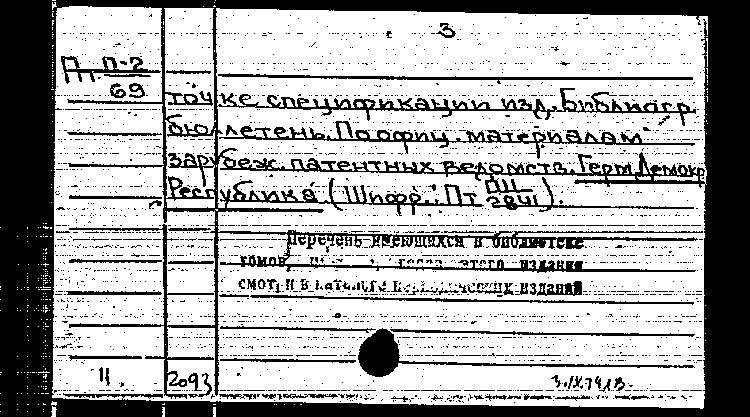 3
Пт. П-2
69
точке спецификации изд. Библиогр.
бюллетень. По офиц. материалам
зарубеж. патентных ведомств. Герм. Демокр.
Республика (Шифр.: Пт ПII
2841).
Перечень имеющихся в библиотеке
томов, этого издания
смотри в каталоге периодических изданий
11. 2093